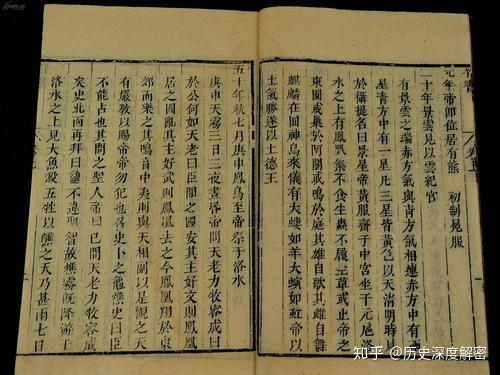 元年帝即位居有熊 初制冕服
二十年景雲見以雲紀官
有景雲之瑞赤方氣與青方氣相連赤方中有兩
星青方中有一星凡三星皆黃色以天清明時見
於攝提名曰景星帝黃服齋于中宮坐于元扈洛
水之上有鳳凰集不食生蟲不履生草或止帝之
東園或巢於阿閣或鳴於庭其雄自歌其雌自舞
麒麟在囿神鳥來儀有大螻如羊大螾如虹帝以
土氣勝遂以土德王
五十年秋七月庚申鳳鳥至帝祭于洛水
庚申天霧三日三夜晝昏帝問天老力牧容成曰
於公何如天老曰臣聞之國安其主好文則鳳凰
居之國亂其主好武則鳳凰去之今鳳凰翔於東
郊而樂之其鳴音中夷則與天相副以是觀之天
有嚴教以賜帝帝勿犯也召史卜之龜燋史曰臣
不能占也其問之聖人帝曰已問天老力牧容成
矣史北面再拜曰龜不違聖智故燋霧既降游于
洛水之上見大魚殺五牲以醮之天乃甚雨七日
知乎 @历史深度解密